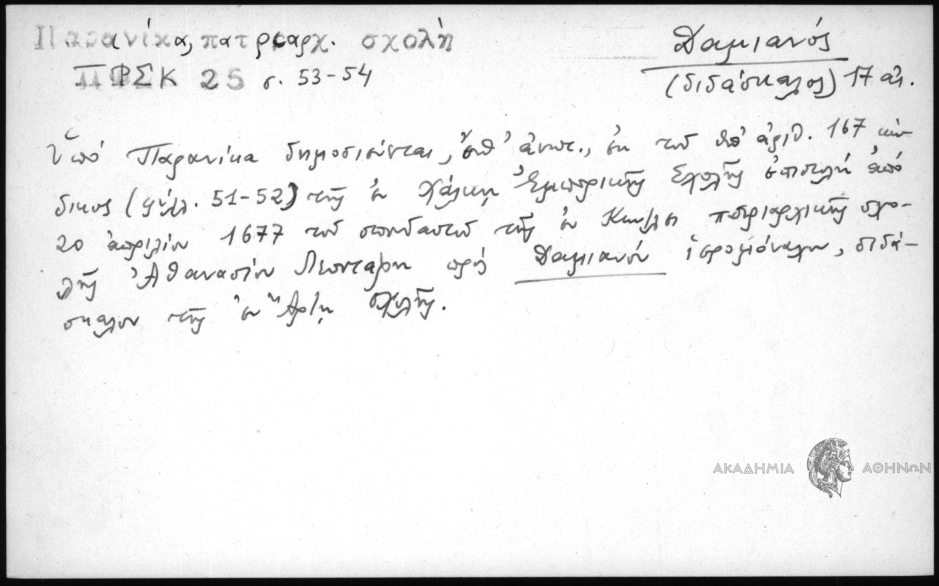 Παρανίκα, πατριαρχ. σχολή
ΠΦΣΚ 25 σ. 53-54
Δαμιανός
(διδάσκαλος) 17 αἰ.
Ὑπὸ Παρανίκα δημοσιεύεται, ἔνθ' ἀνωτ., ἐκ τοῦ ὑπ' ἀριθ. 167 κώ-
δικος (φύλλ. 51-52) τῆς ἐν Χάλκῃ Ἐμπορικῆς Σχολῆς ἐπιστολὴ ἀπὸ
20 ἀπριλίου 1677 τοῦ σπουδαστοῦ τῆς ἐν Κων/λει πατριαρχικῆς σχο-
λῆς Ἀθανασίου πρὸς Δαμιανὸν ἱερομόναχον, διδά-
σκαλον τῆς ἐν Ἄρτῃ σχολῆς.
ΑΚΑΔΗΜΙΑ ΑΘΗΝΩΝ